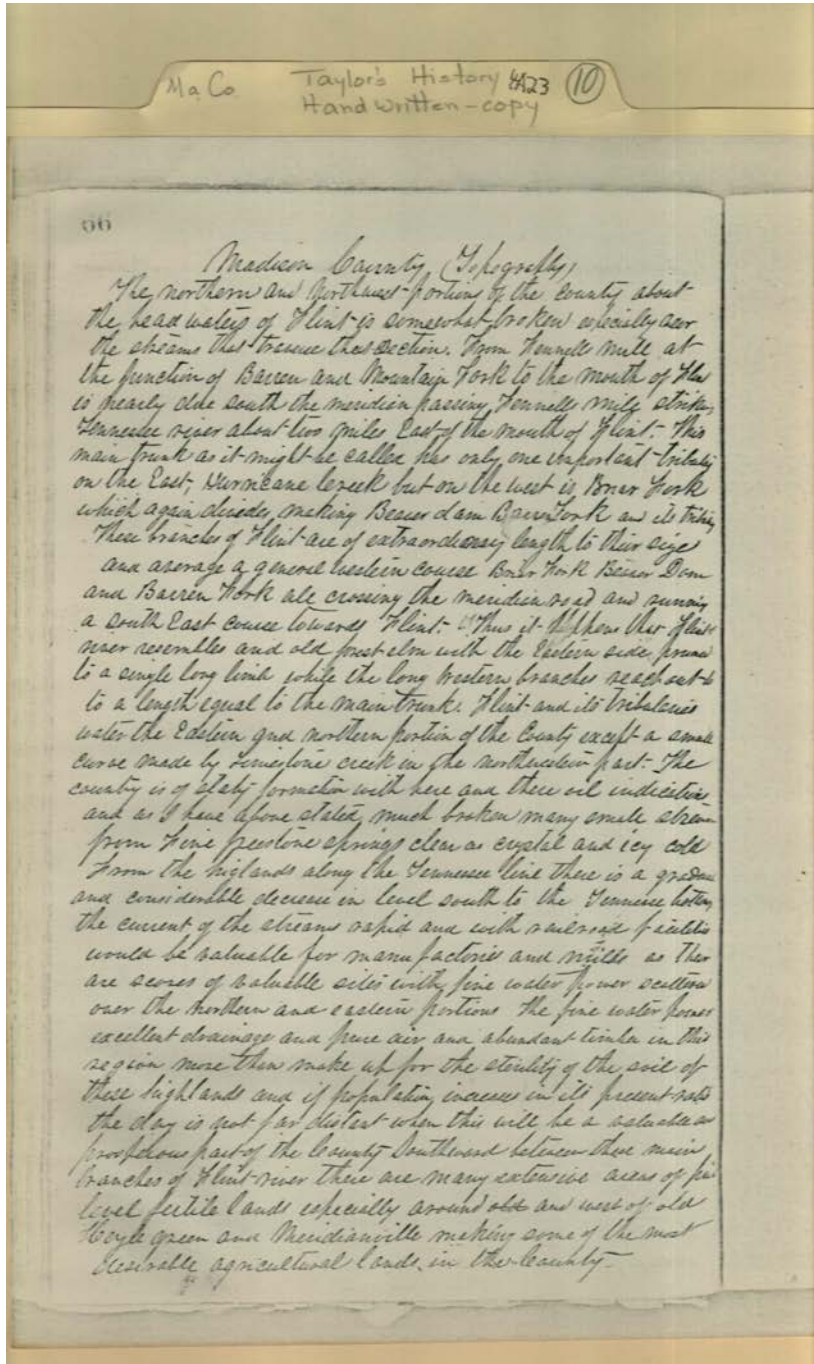 Ma Co Taylor's History 4A23 10
Handwritten-copy
66
Madison County (Topografhy)
The northern and Northwest portions of the county about
the head waters of Flint is somewhat broken especially near
the streams that traverse that section. From Fennells Mill at
the junction of Barren and Mountain Fork to the mouth of Flint
is nearly due south the meridian passing Fennells Mill strikes
Tennessee river about two miles East of the mouth of Flint. This
main trunk as it might be called has only one important tributary
on the East, Hurricane Creek but on the west is, Briar Fork
which again divides, making Beaver dam Barren Fork and its
These branches of Flint are of extraordinary length to their size
and average a general western course Briar Fork Beaver Dam
and Barren Fork all crossing the meridian road and running
a south East course towards Flint. Thus it happens that Flint
river resembles and old forest elm with the Eastern side pruned
to a single long limb while the long Western branches reach out
to a length equal to the main trunk. Flint and its tributaries
water the Eastern and northern portion of the County except a small
curve made by Limestone creek in the northwestern part. The
country is of slaty formation with here and there oil indications
and as I have above stated, much broken many small streams
from Fine freestone springs clear as crystal and icy cold
From the higlands along the Tennessee line there is a gradual
and considerable decrease in level south to the Tennessee
the current of the streams rapid and with railroad facilities
would be valuable for manufactories and mills as ther
are scores of valuable sites with fine water power scattered
over the northern and eastern portions The fine water power
excellent drainage and pure air and abundant timber in this
region more then make up for the sterility of the soil of
these highlands and if population increases in its present rate
the day is not far distant when this will be a valuable
prosperous part of the County Southward between these main
branches of Flint river there are many extensive areas of
level fertile lands especially around old and west of old
Hoyle green and Meridianville making some of the most
desirable agricultural lands in the County